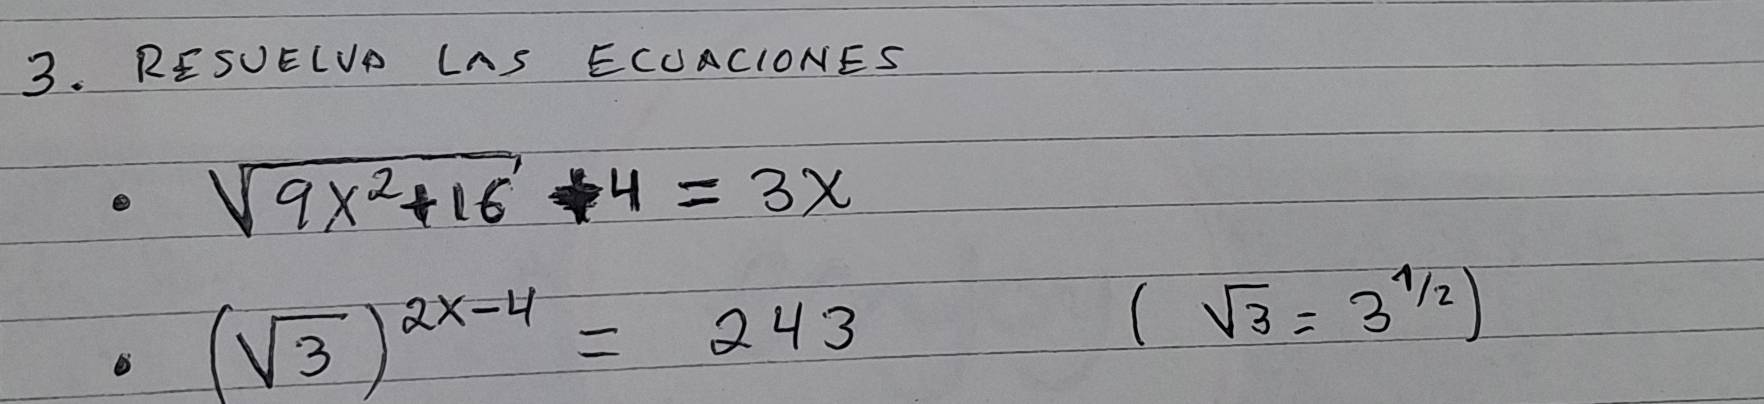 3. RESUELVA LAS ECUACIONES
• √(9x²+16) +4 = 3x
• (√3)^(2x-4) = 243 (√3 = 3^(1/2))